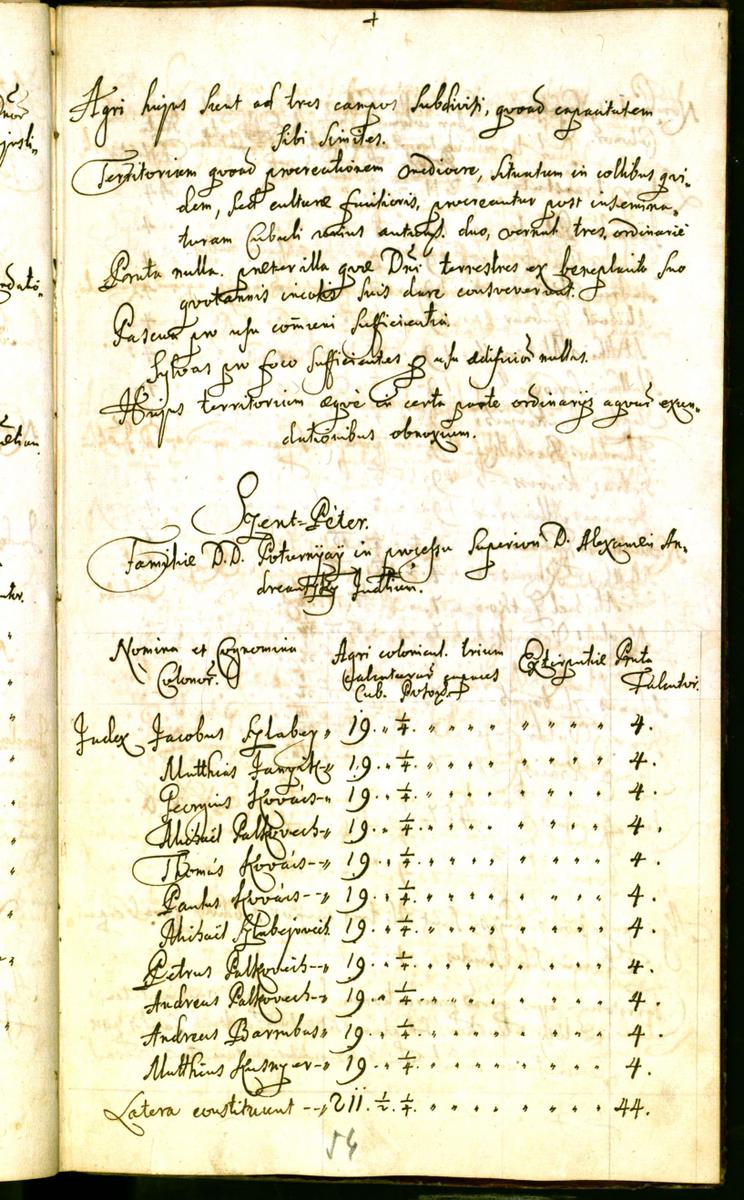 +
Agri hujus sunt ad tres campos subdivisi, quoad capacitatem
sibi similes.
Territorium quoad procreationem mediocre, situatum in collibus qui-
dem, sed culturæ facilioris, procreantur post insemina-
turam Cubuli unius autumn. duo, vernat. tres, ordinarie
Prata nulla. præter illa quæ Dni terrestres ex beneplacito suo
quotannis incolis suis dare consveverant.
Pascua pro usu com̃uni sufficientia.
Sylvas pro foco sufficientes p usu ædificior nullas.
Hujus territorium æquè in certa parte ordinarijs aquar exun-
dationibus obnoxium.
Szent-Péter.
Familiæ D.D. Poturnyay in processu Superiori D. Alexandri An-
dreanszky Judlium.
Nomina et Cognomina
Colonor.
Agri colonical. trium
calcaturar capaces
Cub. Poson.
Extirpatitiæ
Prata
Falcator.
Judex Jacobus Szlabey 19. 1/4 4.
Matthias Janyik 19. 1/4 4.
Georgius Kovács 19. 1/4 4.
Michaël Palkovich 19. 1/4 4.
Thomás Kovács 19. 1/4 4.
Paulus Kovács 19. 1/4 4.
Michaël Szlabejovich 19. 1/4 4.
Petrus Palkovich 19. 1/4 4.
Andreas Palkovich 19. 1/4 4.
Andreas Barnabas 19. 1/4 4.
Matthias Husnyar 19. 1/4 4.
Latera constituunt 211. 1/2. 1/4. 44.
54